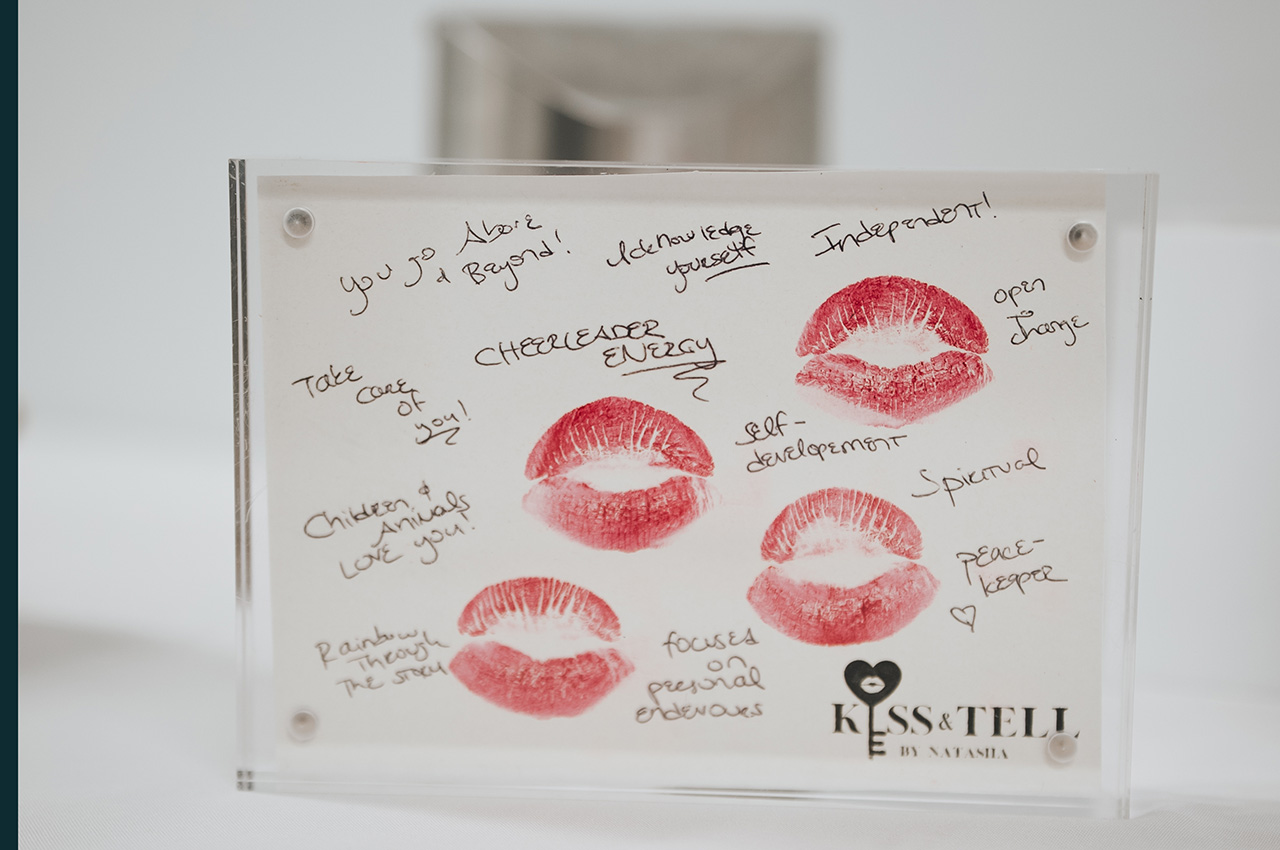 you go Above
& Beyond!
Acknowledge
yourself
Independent!
open
to
change
CHEERLEADER
ENERGY
Take
care
of
you!
self-
developement
Spiritual
Children &
Animals
LOVE you!
peace-
keeper
Rainbow
Through
The story
focused
on
personal
endevours
KISS & TELL
BY NATASHA